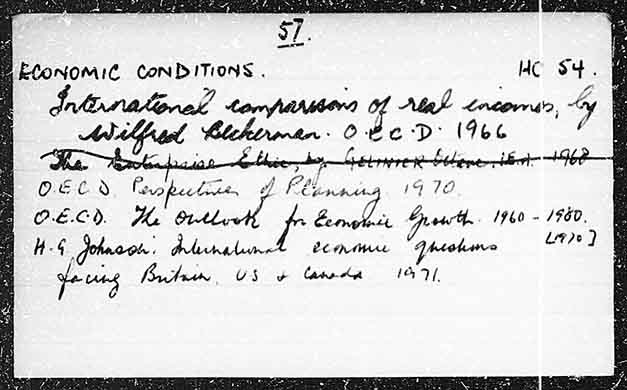 57.
ECONOMIC CONDITIONS. HC 54.
International comparisons of real incomes, by
Wilfred Beckerman. O.E.C.D. 1966
The Enterprise Ethic, by Octave I.E.A. 1968
O.E.C.D. Perspectives of Planning 1970.
O.E.C.D. The Outlook for Economic Growth. 1960 - 1980.
H.G Johnson: International economic questions [1970]
facing Britain, US & Canada 1971.